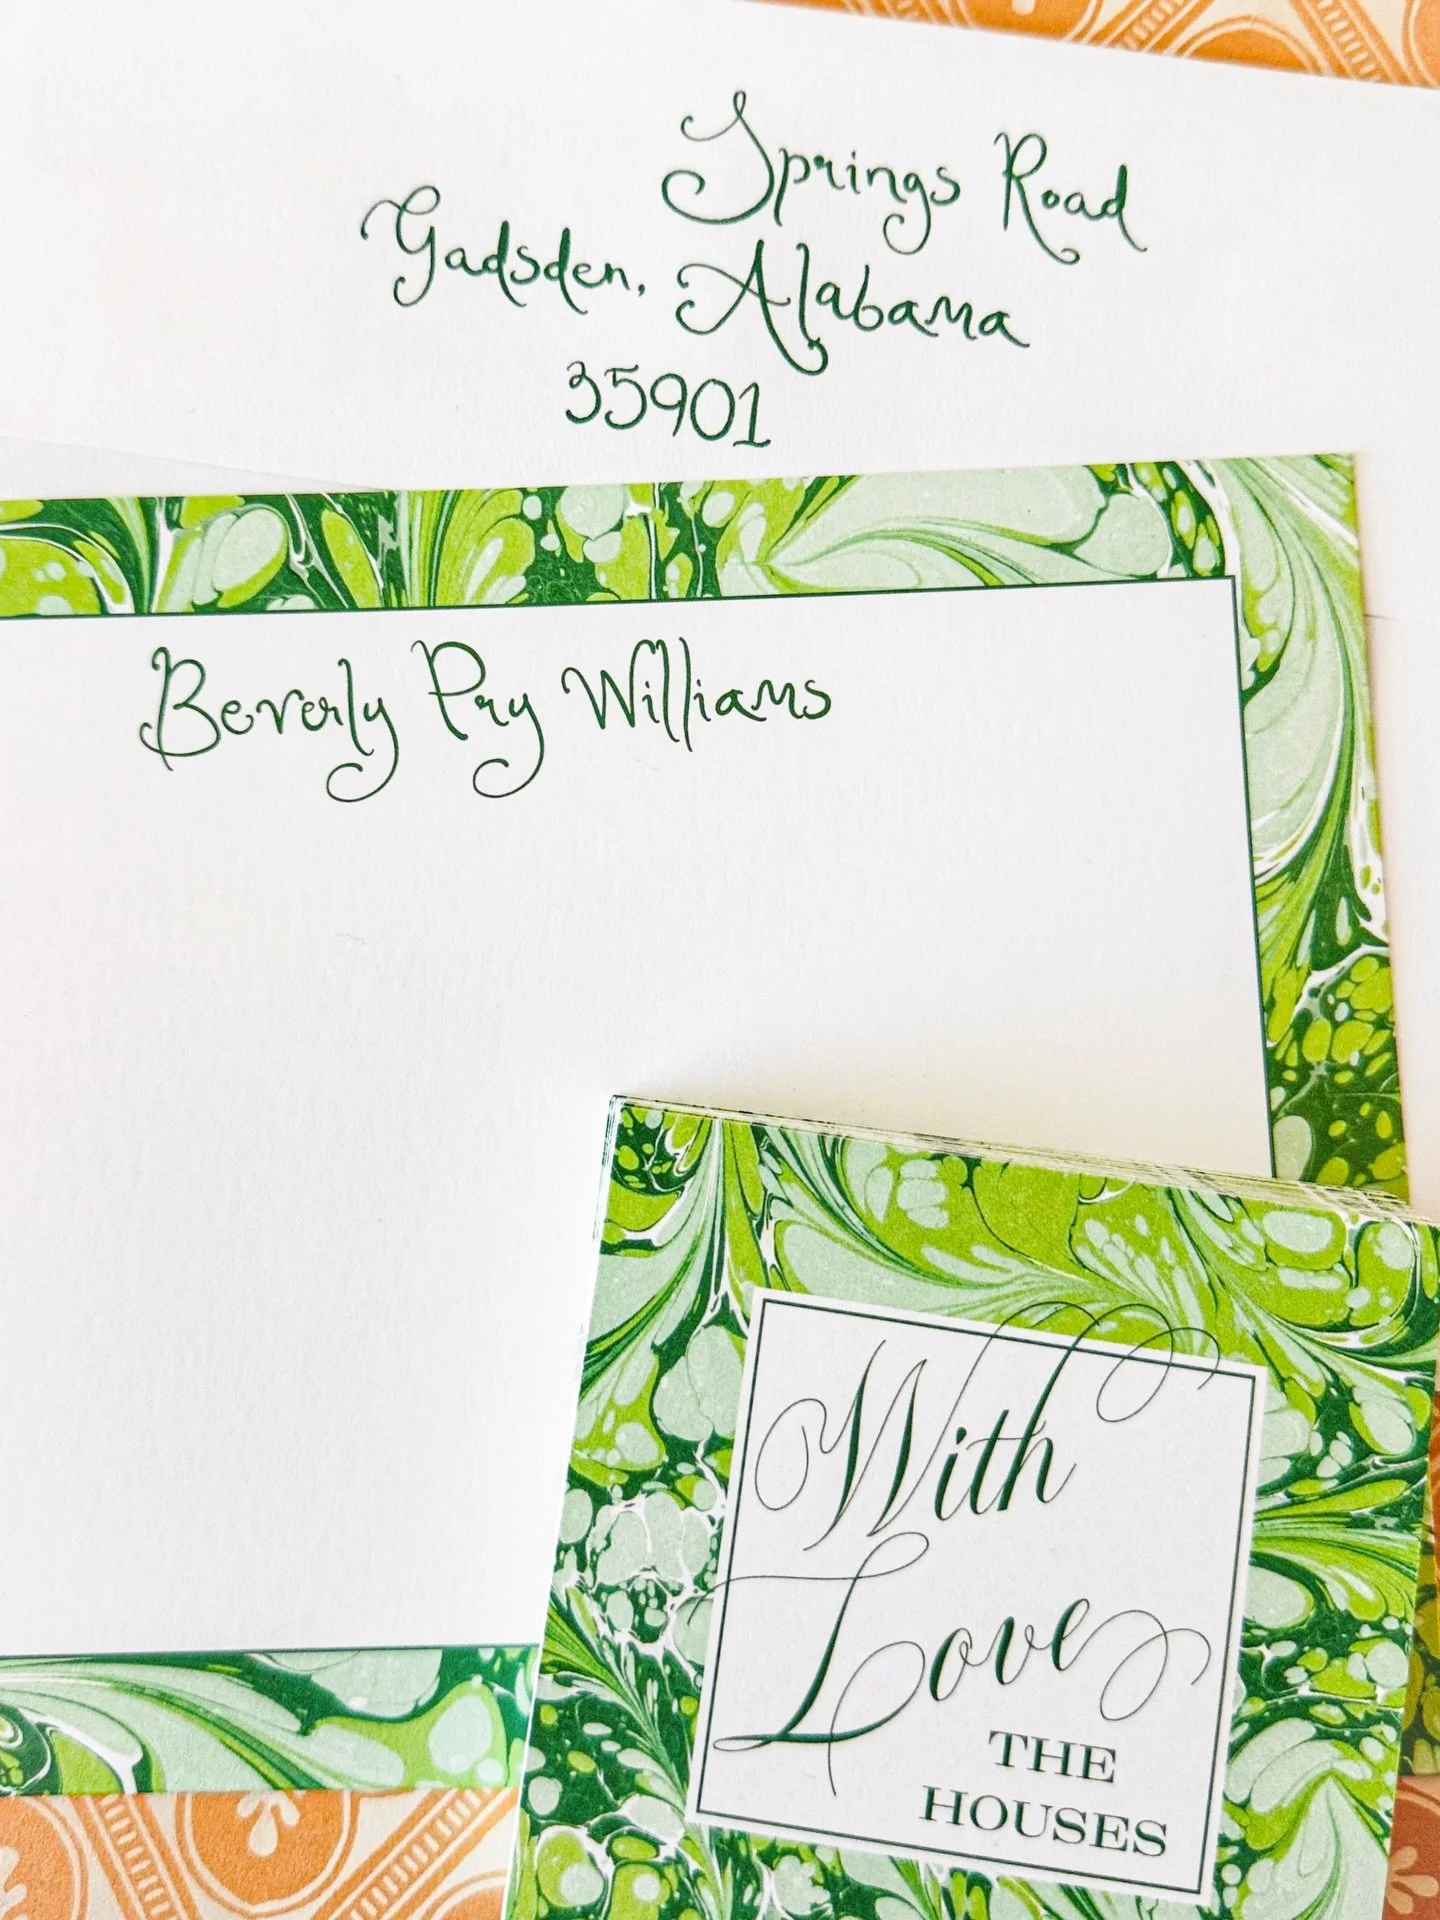 Springs Road
Gadsden, Alabama
35901
Beverly Pry Williams
With
Love
THE
HOUSES